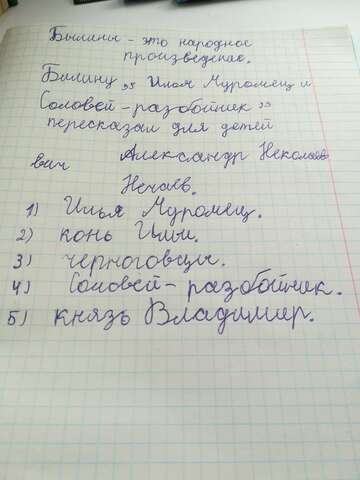 Былины - это народное
произведение.
Билину „ Илья Муромец и
Соловей-разобойник"
пересказал для детей
Александр Неколаев
вич
Нечаев.
1) Илья Муромец.
2) конь Ильи.
3) черноговцы.
4) Соловей-разобойник.
5) князь Владимир.